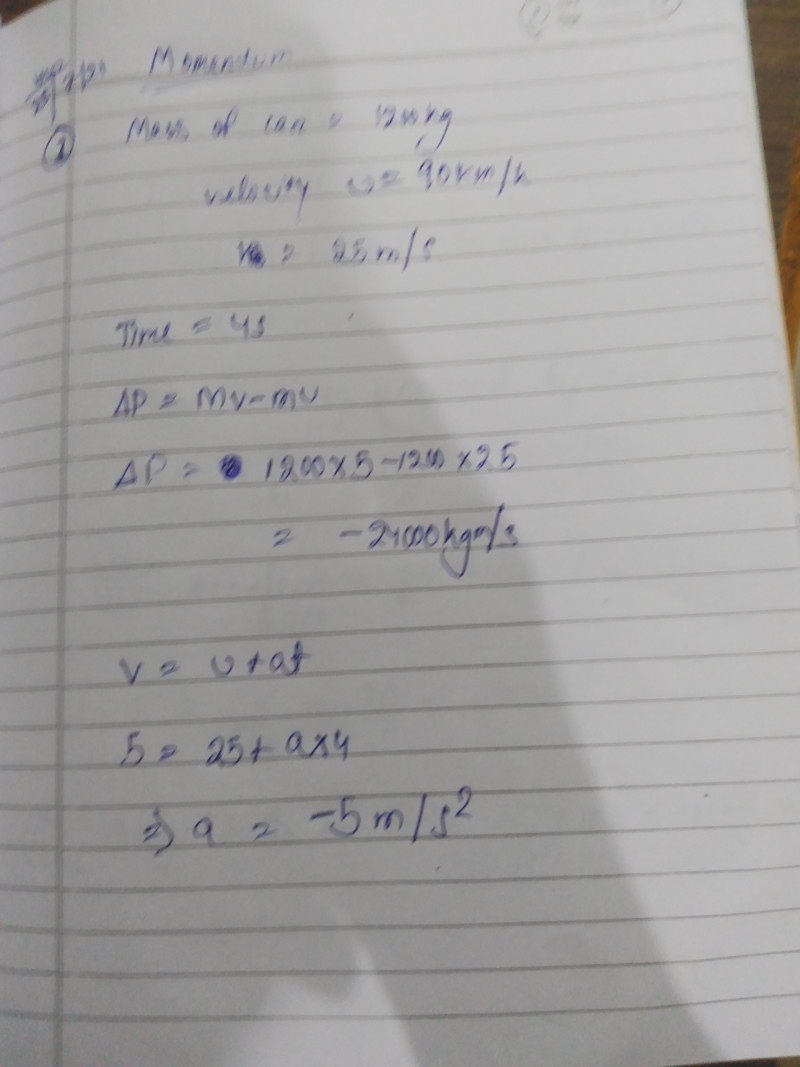 Momendum
① Mass of car = 1200kg
velocity u = 90km/h
= 25m/s
Time = 4s
ΔP = mv-mu
ΔP = 1200×5-1200×25
= -24000kgm/s
v = u+at
5 = 25+a×4
⇒ a = -5m/s²